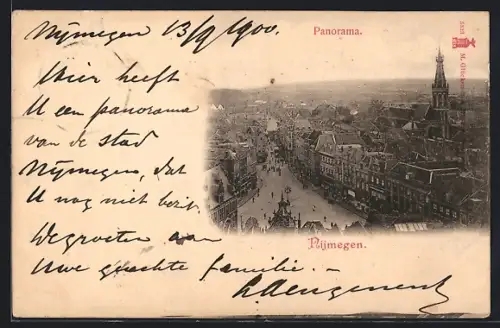 Nijmegen 13/9 1900.
Panorama.
Hier heeft
U een panorama
van de stad
Nijmegen, dat
U nog niet bezit.
Wegroeten aan
Uwe geachte familie. –
Nijmegen.